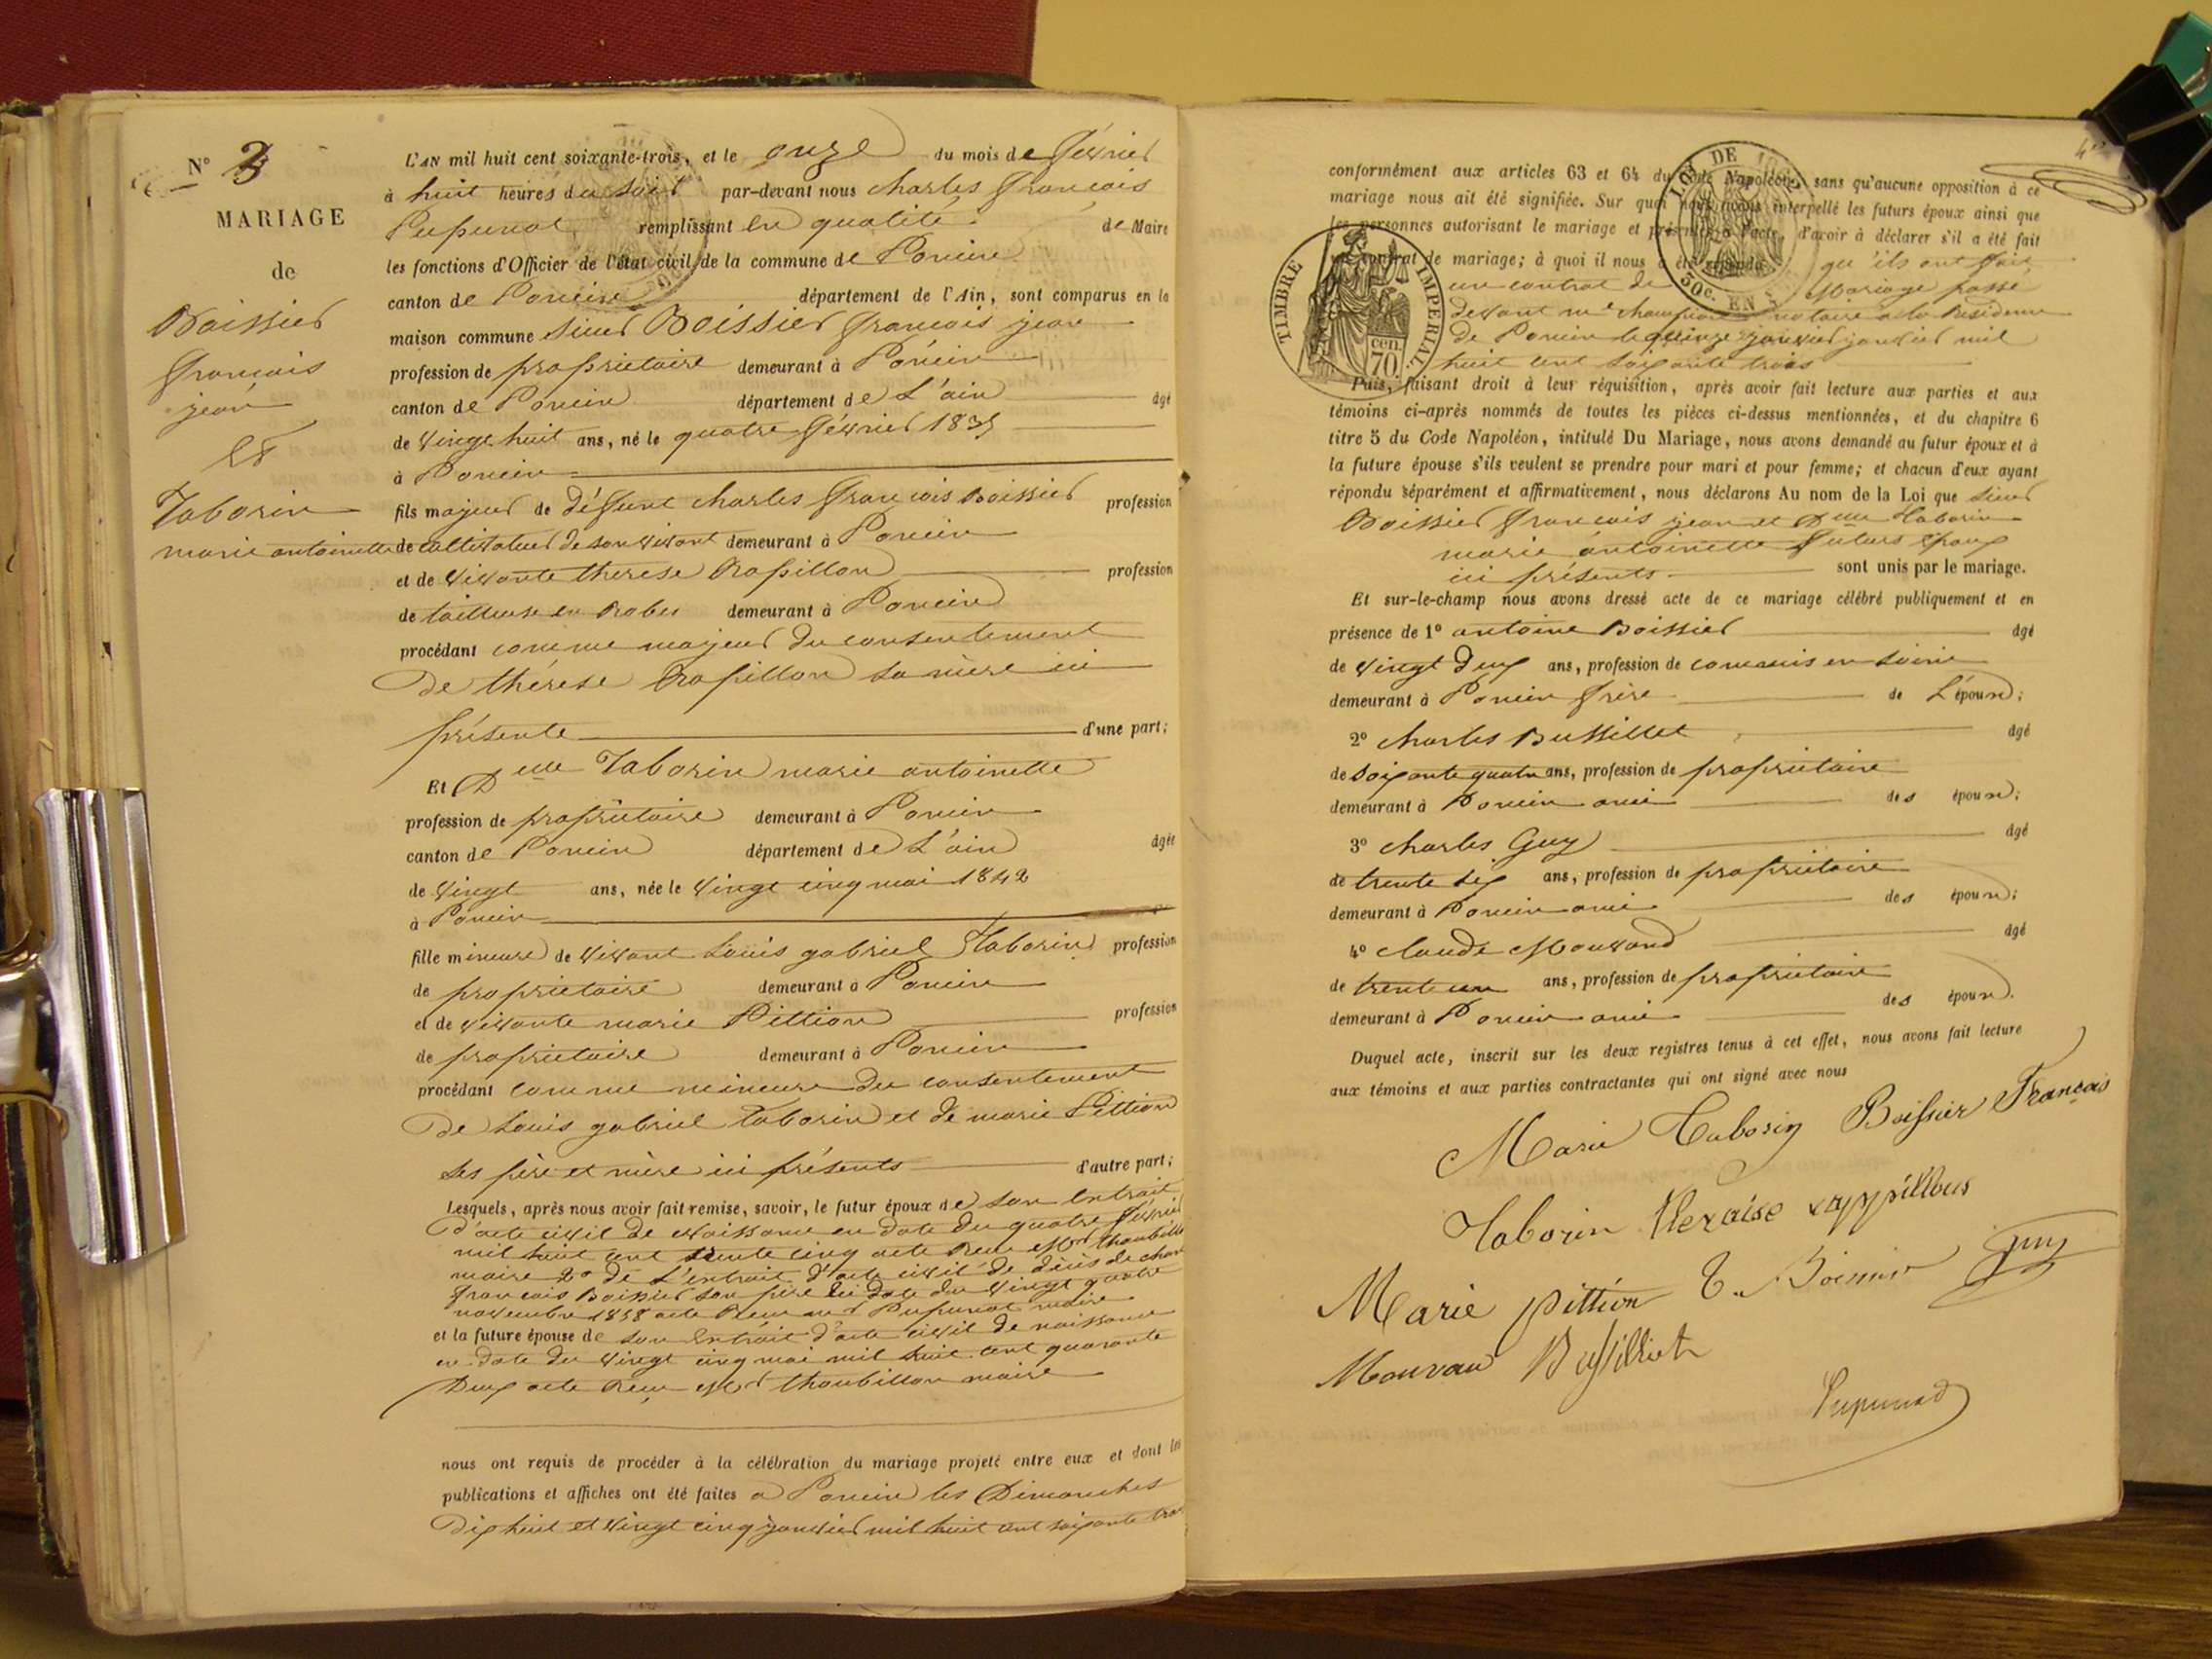 N° 3
MARIAGE
de
Boissier
françois
jean
Et
Taborin
marie antoinette
L'AN mil huit cent soixante-trois, et le onze du mois de février
à huit heures du soir par-devant nous charles françois
Pupunat remplissant en qualité de Maire
les fonctions d'Officier de l'état civil de la commune de Poncin
canton de Poncin département de l'Ain, sont comparus en la
maison commune sieur Boissier françois jean
profession de propriétaire demeurant à Poncin
canton de Poncin département de L'ain âgé
de vingt huit ans, né le quatre février 1835
à Poncin
fils majeur de défunt charles françois Boissier profession
de cultivateur de son vivant demeurant à Poncin
et de vivante thérèse Rapillon profession
de tailleuse en Robes demeurant à Poncin
procédant comme majeur du consentement
De thérèse Rapillon sa mère ici
présente d'une part;
Et Delle Taborin marie antoinette
profession de propriétaire demeurant à Poncin
canton de Poncin département de L'ain âgée
de vingt ans, née le vingt cinq mai 1842
à Poncin
fille mineure de vivant Louis gabriel Taborin profession
de propriétaire demeurant à Poncin
et de vivante marie Pittion profession
de propriétaire demeurant à Poncin
procédant comme mineure du consentement
De Louis gabriel Taborin et de marie Pittion
ses père et mère ici présents d'autre part;
Lesquels, après nous avoir fait remise, savoir, le futur époux de son Extrait
d'acte civil de naissance en date du quatre février
mil huit cent trente cinq acte Reçu Mr thoubillon
maire 2° de L'extrait d'acte civil de décès de charles
françois Boissier son père en date du vingt quatre
novembre 1858 acte Reçu mr Pupunat maire
et la future épouse de son Extrait d'acte civil de naissance
en date du vingt cinq mai mil huit cent quarante
Deux acte Reçu Mr thoubillon maire
nous ont requis de procéder à la célébration du mariage projeté entre eux et dont les
publications et affiches ont été faites à Poncin les Dimanches
Dix huit et vingt cinq janvier mil huit cent soixante trois
conformément aux articles 63 et 64 du Code Napoléon, sans qu'aucune opposition à ce
mariage nous ait été signifiée. Sur quoi nous avons interpellé les futurs époux ainsi que
les personnes autorisant le mariage et présentes à l'acte, d'avoir à déclarer s'il a été fait
un contrat de mariage; à quoi il nous a été répondu qu'ils ont fait
un contrat de Mariage passé
devant me champion notaire à la Résidence
de Poncin le quinze janvier janvier mil
huit cent soixante trois
TIMBRE IMPÉRIAL
cen.
70
LOI DE
50c. EN
Puis, faisant droit à leur réquisition, après avoir fait lecture aux parties et aux
témoins ci-après nommés de toutes les pièces ci-dessus mentionnées, et du chapitre 6
titre 5 du Code Napoléon, intitulé Du Mariage, nous avons demandé au futur époux et à
la future épouse s'ils veulent se prendre pour mari et pour femme; et chacun d'eux ayant
répondu séparément et affirmativement, nous déclarons Au nom de la Loi que sieur
Boissier françois jean et Delle Taborin
marie antoinette futurs époux
ici présents sont unis par le mariage.
Et sur-le-champ nous avons dressé acte de ce mariage célébré publiquement et en
présence de 1° antoine Boissier âgé
de vingt Deux ans, profession de commis en soirie
demeurant à Poncin frère de L'époux;
2° charles Bussillet âgé
de soixante quatre ans, profession de propriétaire
demeurant à Poncin ami des époux;
3° charles Guy âgé
de trente six ans, profession de propriétaire
demeurant à Poncin ami des époux;
4° claude Mouvand âgé
de trente un ans, profession de propriétaire
demeurant à Poncin ami des époux.
Duquel acte, inscrit sur les deux registres tenus à cet effet, nous avons fait lecture
aux témoins et aux parties contractantes qui ont signé avec nous
Marie Taborin Boissier François
Taborin
Marie pittion Boissier guy
Mouvau Bussilliet
Pupunat